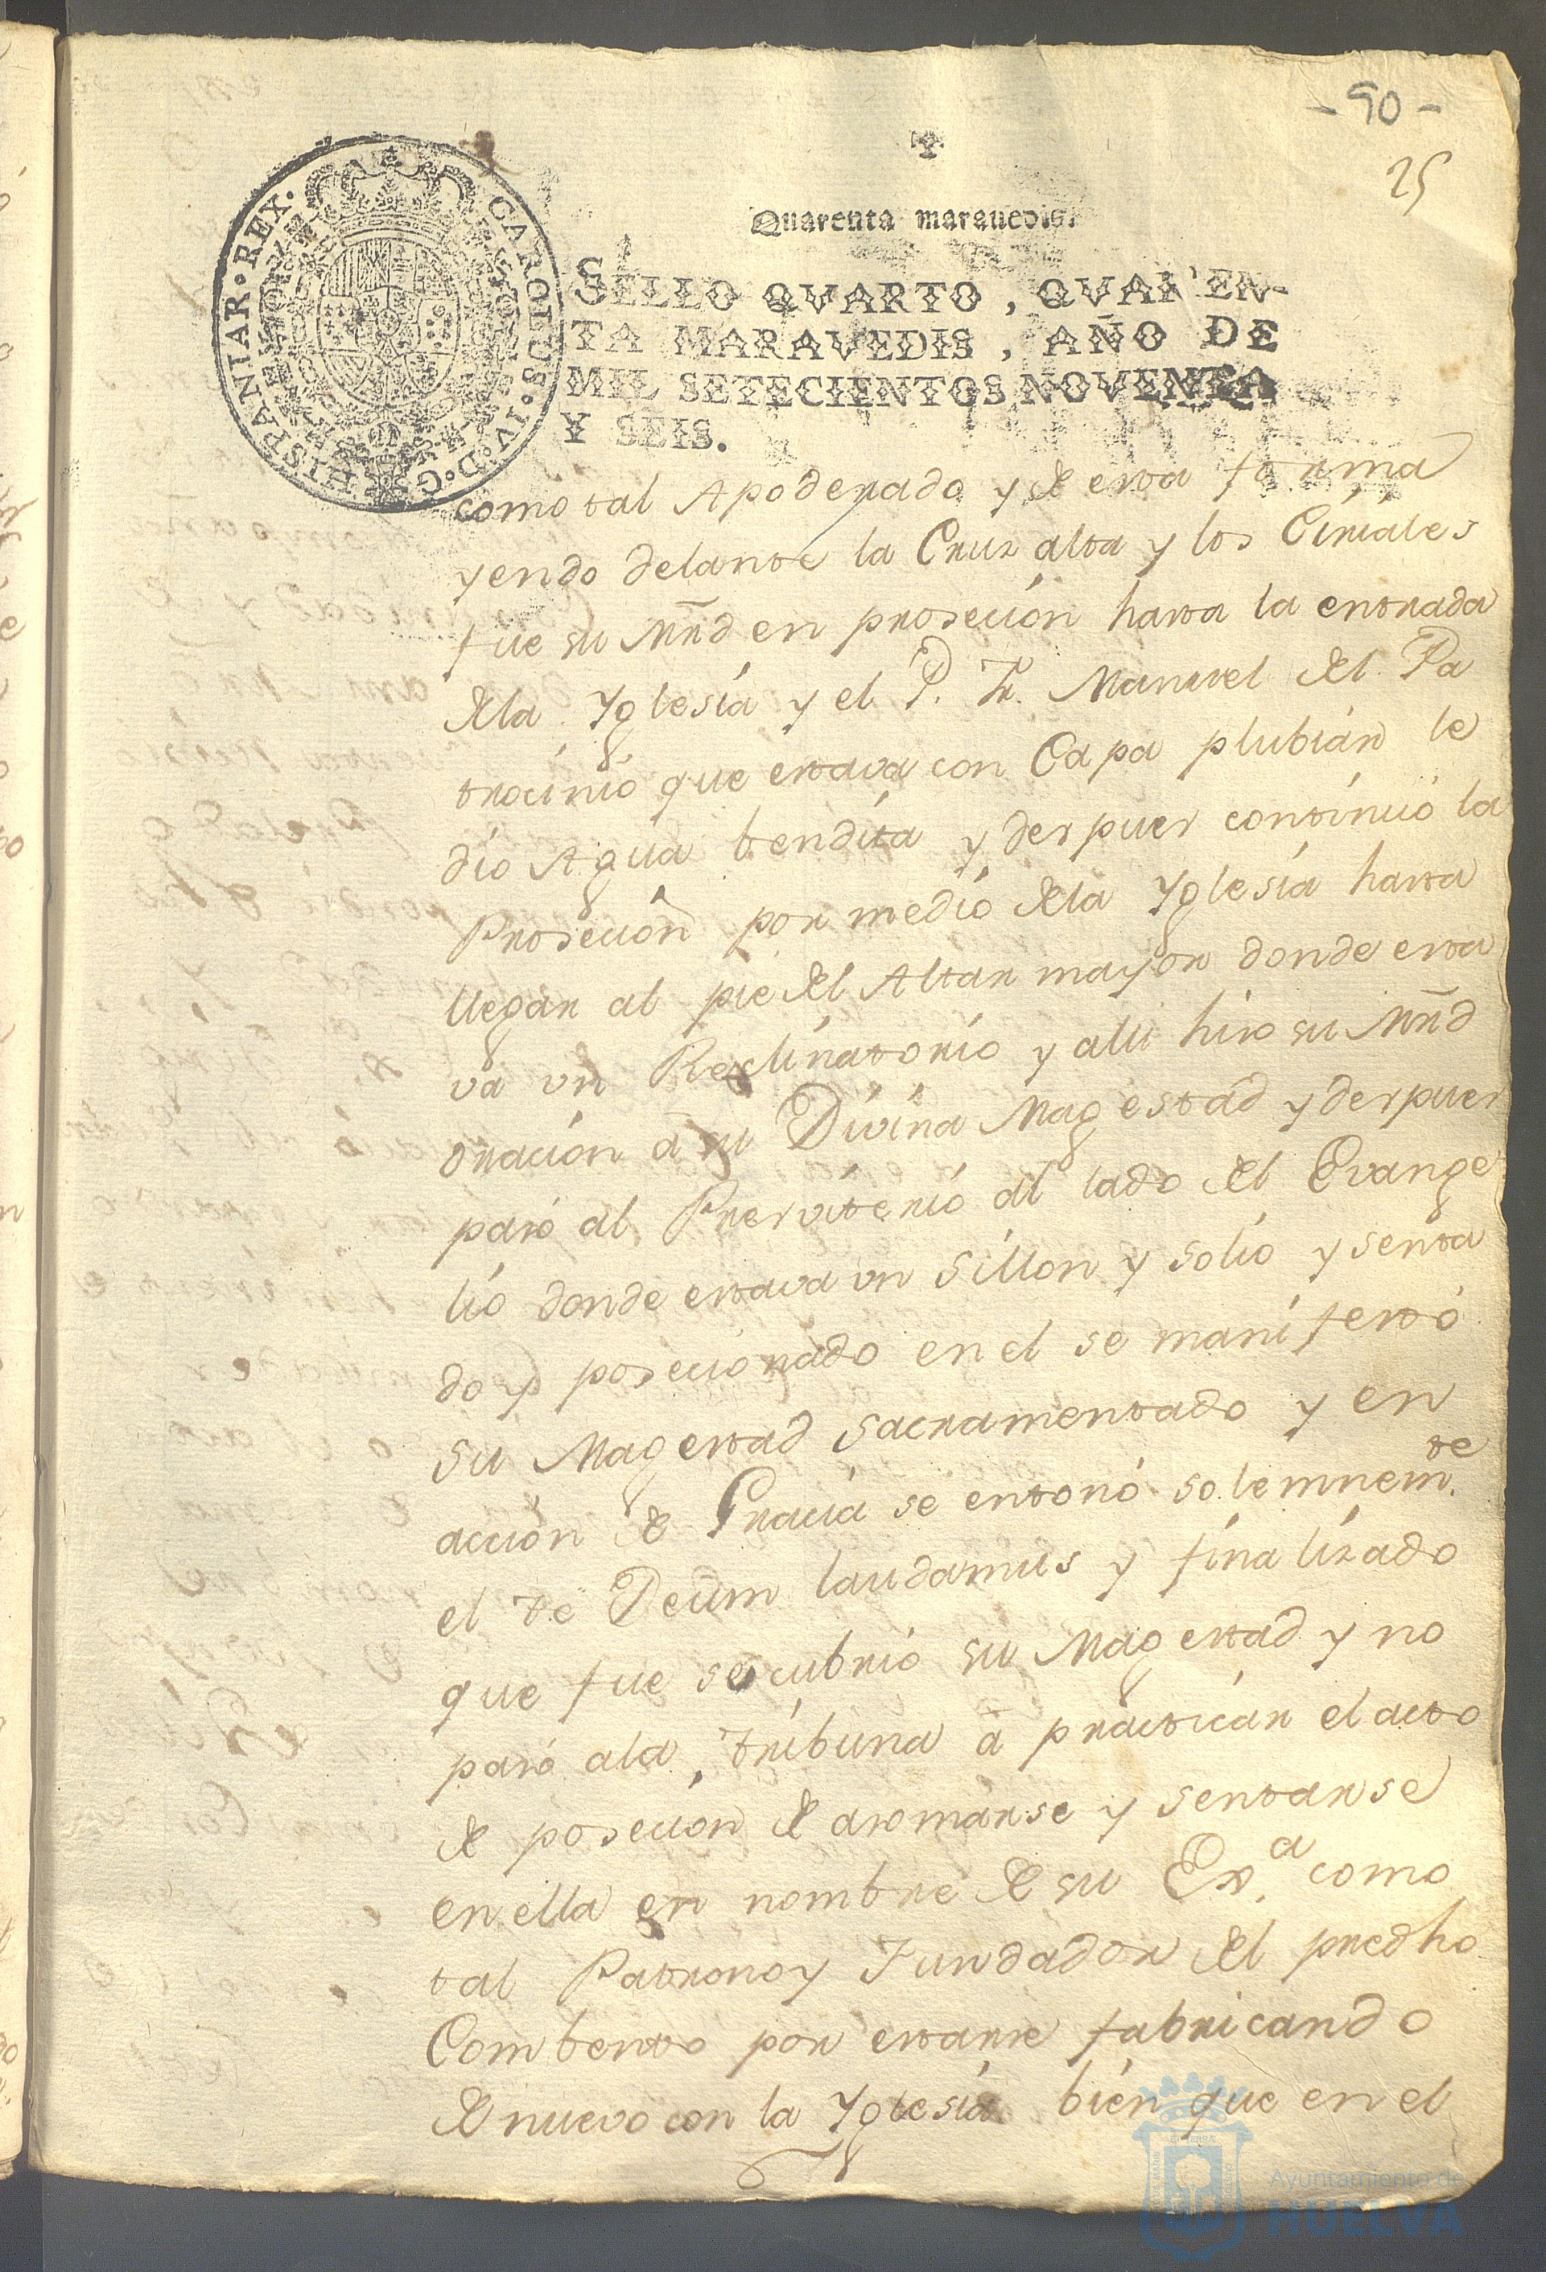 - 90 -
25
Quarenta maravedis.
SELLO QVARTO, QVAREN-
TA MARAVEDIS, AÑO DE
MIL SETECIENTOS NOVENTA
Y SEIS.
CAROLUS·IV·D·G·HISPANIAR·REX·
como tal Apoderado y de esta forma
yendo delante la Cruz alta y los Ciriales
fue su Mrñd en proseción hasta la entrada
dela Yglesía y el P. Fr. Manuel del Pa
trocinió que estava con Capa plubián le
dío Agua bendita y despues contínuó la
Proseción por medió dela Yglesía hasta
llegar al pie del Altar mayor donde esta
va un Reclinatorío y alli hizo su Mrñd
oración â su Divína Magestad y despues
pasó al Presvíterió al lado del Evange
lio donde estava un Sillon y Solío y senta
do y posecionado en el se manifestó
Su Magestad Sacramentado y en
acción de Gracía se entonó solemnem.te
el Te Deum laudamus y finalizado
que fue se cubrió su Magestad y no
pasó ala tríbuna à practicár el acto
de poseción de asomárse y sentarse
en ella en nombre de su Ex.a como
tal Patrono y Fundador del predho
Combento por estarse fabricando
de nuevo con la Yglesía bién que en el
Ayuntamiento de
HUELVA